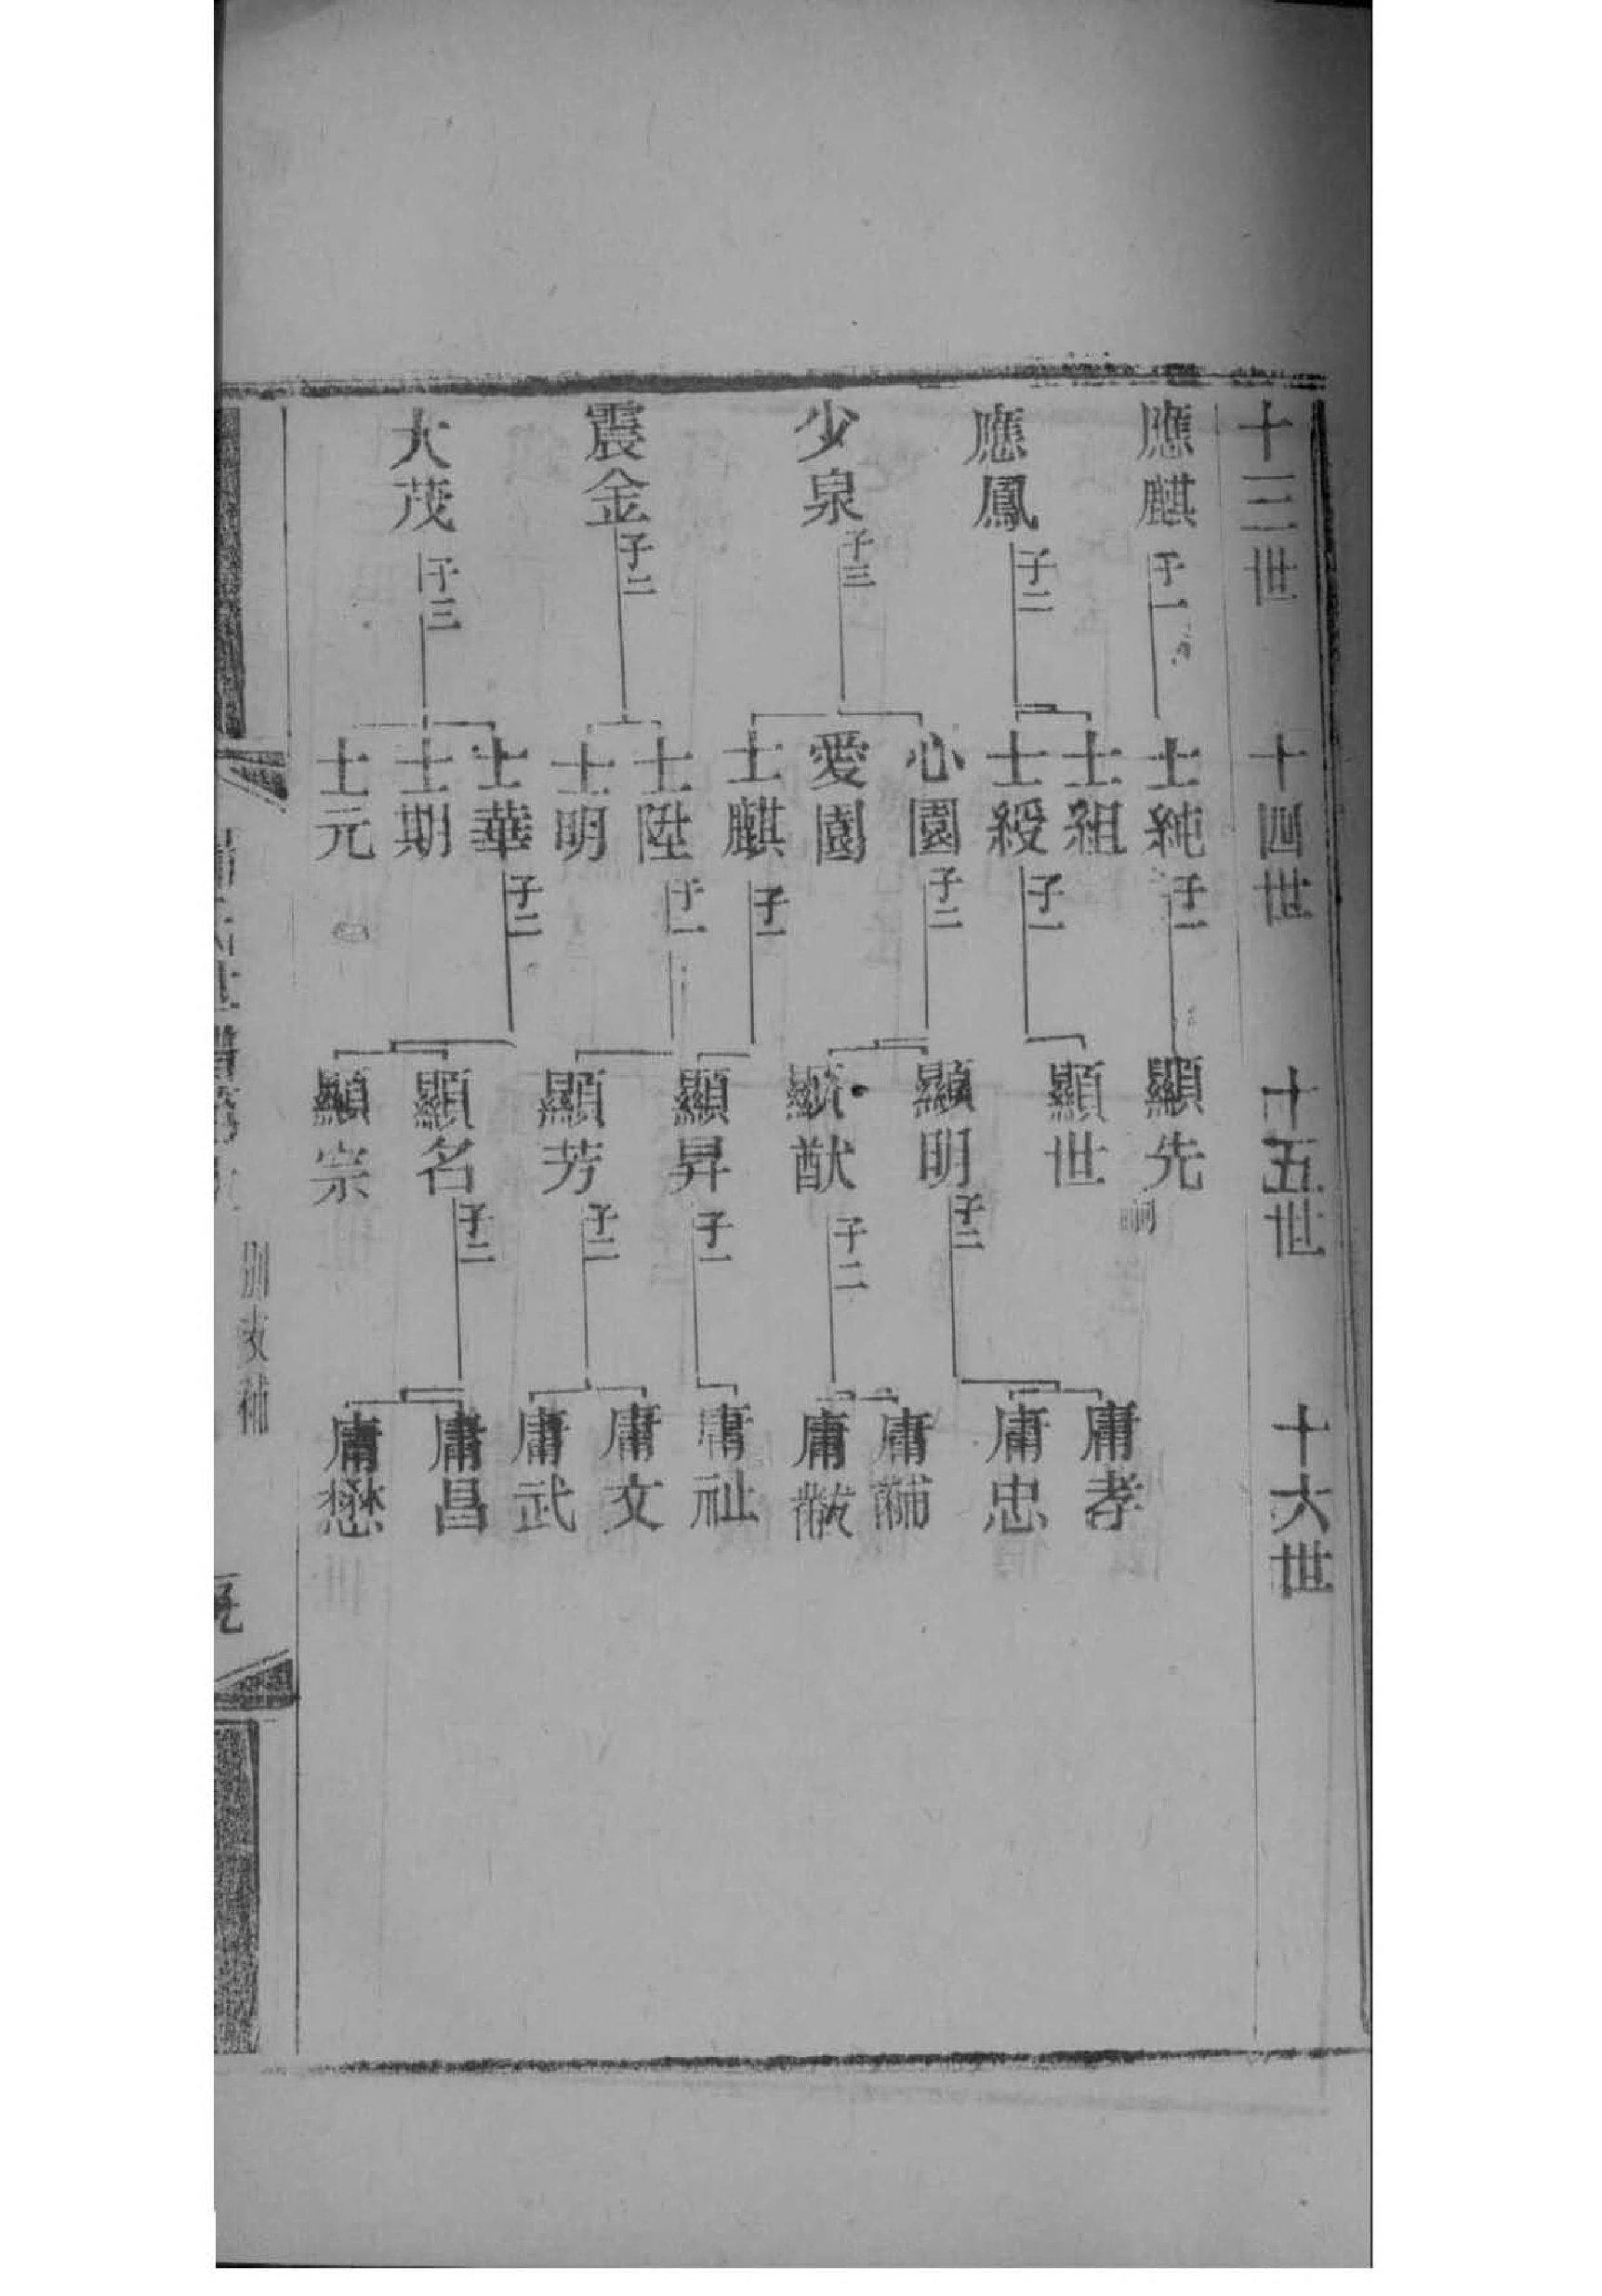 十三世
十四世
十五世
十六世
應麒
子一
應鳳
子二
少泉
子三
震金
子二
大茂
子三
士純
子一
士組
士綬
子一
心園
子二
愛園
士麒
子一
士陞
子一
士明
士華
子二
士期
士元
顯先
嗣
顯世
顯明
子二
顯猷
子二
顯昇
子一
顯芳
子二
顯名
子二
顯宗
庸孝
庸忠
庸黼
庸黻
庸祉
庸文
庸武
庸昌
庸懋